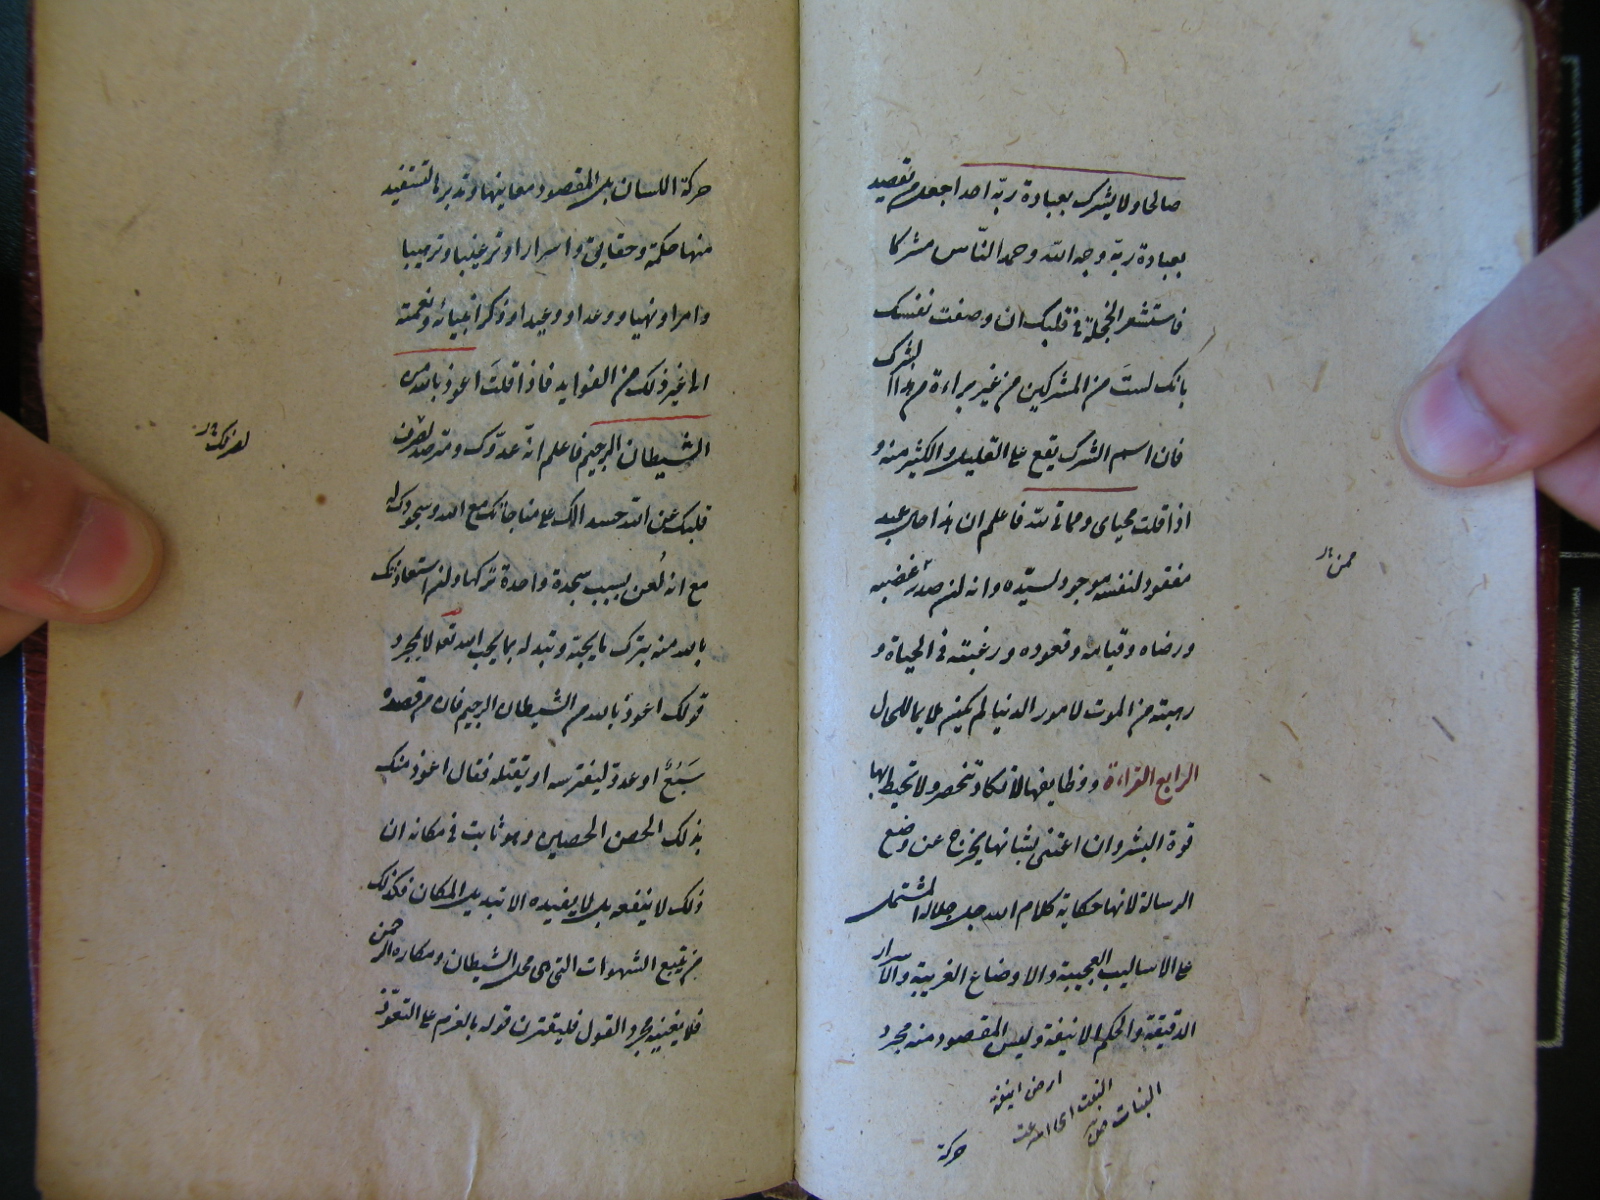 صالحا ولا يشرك بعبادة ربّه احدا جعل من تقصيد
بعبادة ربّه وجه الله وحمد النّاس مشركا
فاستشعر الخجلة في قلبك ان وصفت نفسك
بانك لستَ من المشركين من غير براءة من هذا الشرك
فان اسم الشرك يقع على القليل والكثير منه و
اذا قلت محياى ومماتى لله فاعلم ان هذا حال عبد
مفقود لنفسه موجود لسيّده وانه لمن صدر غضبه
ورضاه وقيامه وقعوده ورغبته في الحياة و
رهبته من الموت لامور الدنيا لم يكن ملايما للحال
الرابع القراءة ووظايفها لا تكاد تنحصر ولا تحيط بها
قوة البشر وان اعتنى بشانها يخرج عن وضع
الرسالة لانها حكاية كلام الله جل جلاله المشتمل
على الاساليب العجيبة والاوضاع الغريبة والاسرار
الدقيقة والحكم الانيقة وليس المقصود منه مجرد
ممن
ارض انيقة
حركة
حركة اللسان بل المقصود معانيها وتدبرها لتستفيد
منها حكمة وحقايق واسرارا وترغيبا وترهيبا
وامرا ونهيا ووعدا ووعيدا وذكر انبيائه ونعمته
الى غير ذلك من الفوايد فاذا قلتَ اعوذ بالله من
الشيطان الرجيم فاعلم انّه عدّوك ومترصد لصرف
قلبك عن الله حسدا لك على مناجاتك مع الله وسجودك له
مع انه لُعن بسبب سجدة واحدة تركها ولن استعاذتك
بالله منه بترك ما يحبّه وتبدله بما يحب الله تعالى لا بمجرد
قولك اعوذ بالله من الشيطان الرجيم فان من قصده
سَبُعٌ او عدوّ ليفترسه او يقتله فقال اعوذ منك
بذلك الحصن الحصين وهو ثابت في مكانه ان
ذلك لا ينفعه بل لا يفيده الا تبديل المكان فكذلك
من يتبع الشهوات التى هى محل الشيطان ومكاره الرحمن
فلا يغنيه مجرد القول فليقترن قوله بالعزم على التعوّذ